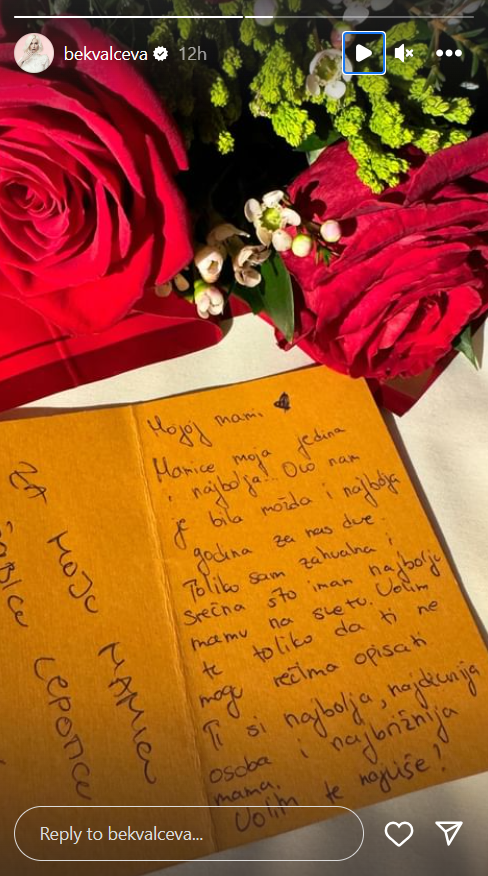 bekvalceva 12h
Mojoj mami
Mamice moja jedina
i najbolja. Ovo nam
je bila možda i najbolja
godina za nas dve.
Toliko sam zahvalna i
srećna što imam najbolju
mamu na svetu. Volim
te toliko da ti ne
mogu rečima opisati
Ti si najbolja, najdivnija
osoba i najbrižnija
mama.
Volim te najviše!
ZA MOJU MAMICU
LEPOTICU
Reply to bekvalceva...